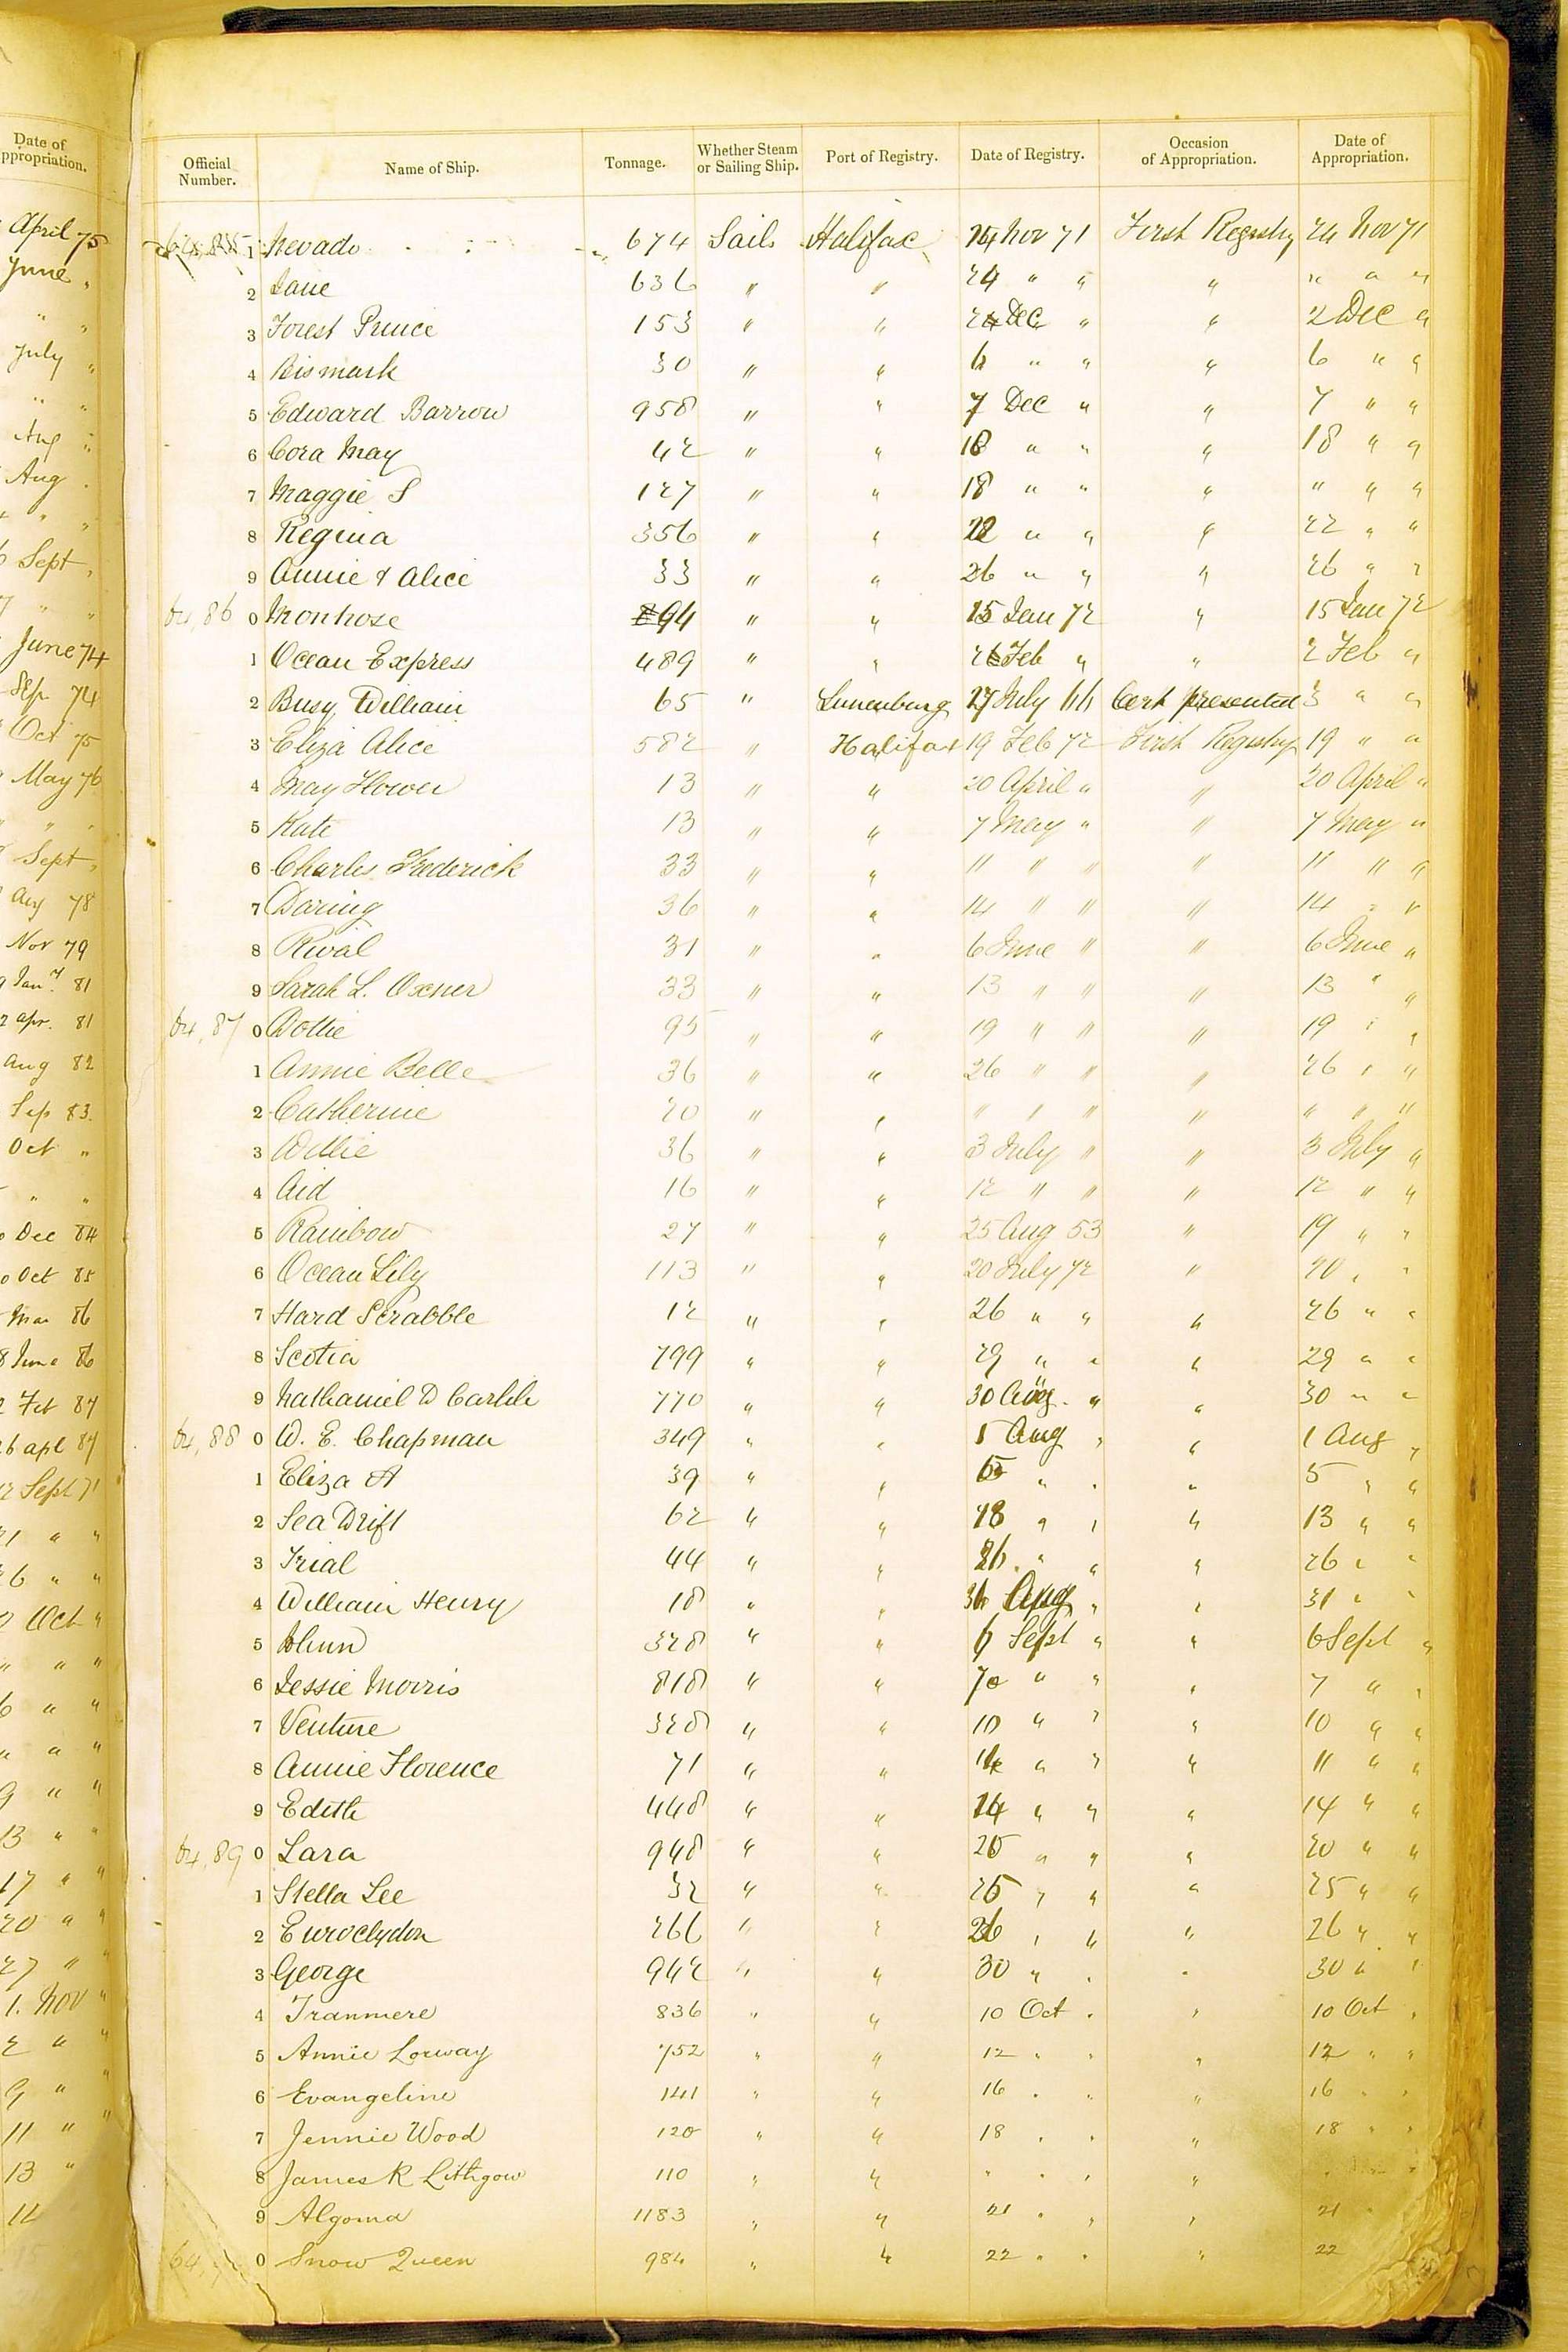 Date of
ppropriation.
April 75
June "
" "
July "
" "
Aug "
Aug "
" "
Sept "
" "
June 74
Sep 74
Oct 75
May 76
" "
Sept "
Aug 78
Nov 79
Jany 81
2 apr. 81
Aug 82
Sep 83.
Oct "
" "
Dec 84
Oct 85
Mar 86
8 June 86
2 Feb 87
26 apl 87
12 Sept 71
" "
26 " "
Oct "
" " "
6 " "
" " "
9 " "
13 " "
17 " "
20 " "
27 " "
1. Nov "
2 " "
9 " "
11 " "
13 "
Official Number. Name of Ship. Tonnage. Whether Steam or Sailing Ship. Port of Registry. Date of Registry. Occasion of Appropriation. Date of Appropriation.
64,85 1 Nevada 674 Sails Halifax 24 Nov 71 First Registry 24 Nov 71
2 Jane 636 " " 24 " " " " " "
3 Forest Prince 153 " " 2 Dec " " 2 Dec "
4 Bismark 30 " " 6 " " " 6 " "
5 Edward Barrow 958 " " 7 Dec " " 7 " "
6 Cora May 42 " " 18 " " " 18 " "
7 Maggie S 127 " " 18 " " " " " "
8 Regina 356 " " 22 " " " 22 " "
9 Annie & Alice 33 " " 26 " " " 26 " "
64,86 0 Montrose 94 " " 15 Jan 72 " 15 Jan 72
1 Ocean Express 489 " " 2 Feb " " 2 Feb "
2 Busy William 65 " Lunenburg 27 July 66 Cert presented 3 " "
3 Eliza Alice 582 " Halifax 19 Feb 72 First Registry 19 " "
4 May Flower 13 " " 20 April " " 20 April "
5 Kate 13 " " 7 May " " 7 May "
6 Charles Frederick 33 " " 11 " " " 11 " "
7 Daring 36 " " 14 " " " 14 " "
8 Rival 31 " " 6 June " " 6 June "
9 Sarah L. Oxner 33 " " 13 " " " 13 " "
64,87 0 Dottie 95 " " 19 " " " 19 " "
1 Annie Belle 36 " " 26 " " " 26 " "
2 Catherine 20 " " " " " " " " "
3 Willie 36 " " 3 July " " 3 July "
4 Aid 16 " " 12 " " " 12 " "
5 Rainbow 27 " " 25 Aug 53 " 19 " "
6 Ocean Lily 113 " " 20 July 72 " 20 " "
7 Hard Scrabble 12 " " 26 " " " 26 " "
8 Scotia 799 " " 29 " " " 29 " "
9 Nathaniel D Carlile 770 " " 30 " " 30 " "
64,88 0 W. E. Chapman 349 " " 1 Aug " " 1 Aug "
1 Eliza A 39 " " 5 " " " 5 " "
2 Sea Drift 62 " " 13 " " " 13 " "
3 Trial 44 " " 26 " " " 26 " "
4 William Henry 18 " " 31 Aug " " 31 " "
5 328 " " 6 Sept " " 6 Sept "
6 Jessie Morris 818 " " 7 " " " 7 " "
7 Venture 328 " " 10 " " " 10 " "
8 Annie Florence 71 " " 11 " " " 11 " "
9 Edith 448 " " 14 " " " 14 " "
64,89 0 Lara 948 " " 20 " " " 20 " "
1 Stella Lee 32 " " 25 " " " 25 " "
2 Euroclydon 266 " " 26 " " " 26 " "
3 George 942 " " 30 " " " 30 " "
4 Tranmere 836 " " 10 Oct " " 10 Oct "
5 Annie Lorway 752 " " 12 " " " 12 " "
6 Evangeline 141 " " 16 " " " 16 " "
7 Jennie Wood 120 " " 18 " " " 18 " "
8 James R Lithgow 110 " " " " " " " "
9 Algoma 1183 " " 21 " " " 21
64,9 0 Snow Queen 984 " " 22 " " " 22